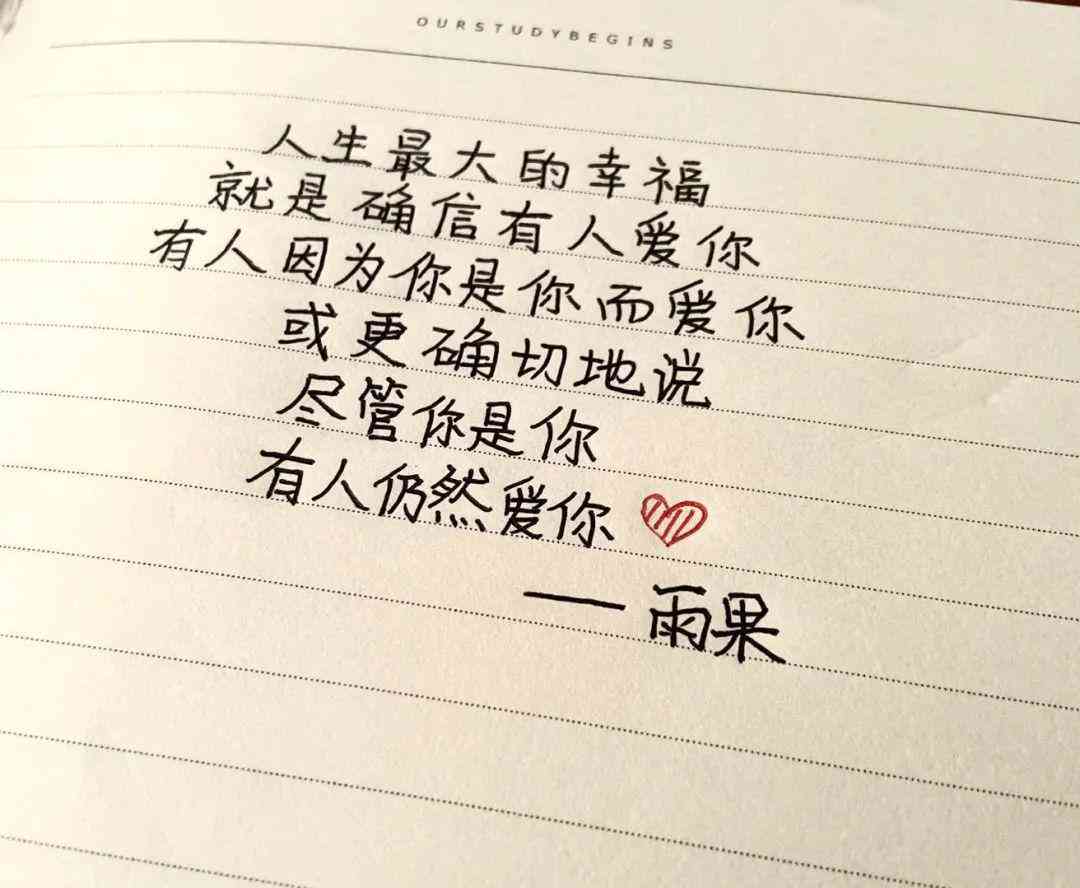 OURSTUDYBEGINS
人生最大的幸福
就是确信有人爱你
有人因为你是你而爱你
或更确切地说
尽管你是你
有人仍然爱你
—雨果